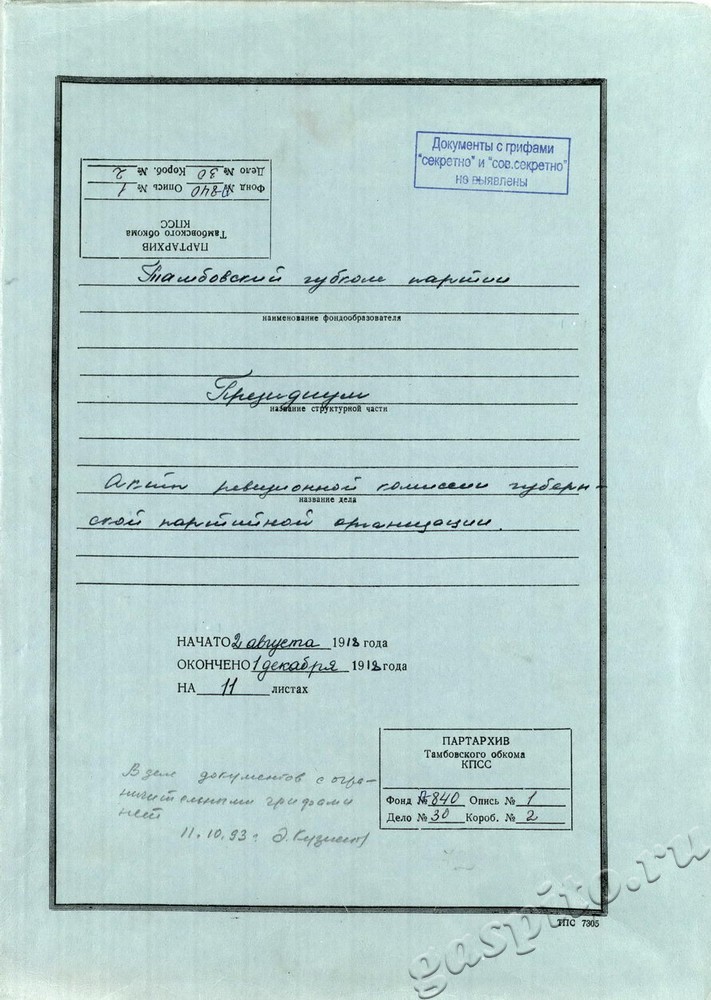 Документы с грифами
"секретно" и "сов.секретно"
не выявлены
ПАРТАРХИВ
Тамбовского обкома
КПСС
Фонд № П-840 Опись № 1
Дело № 30 Короб. № 2
Тамбовский губком партии
наименование фондообразователя
Президиум
название структурной части
Акты ревизионной комиссии губерн-
название дела
ской партийной организации.
НАЧАТО 2 августа 1918 года
ОКОНЧЕНО 1 декабря 1918 года
НА 11 листах
ПАРТАРХИВ
Тамбовского обкома
КПСС
Фонд № П-840 Опись № 1
Дело № 30 Короб. № 2
В деле документов с огра-
ничительными грифами
нет
11.10.93г.
ТПС 7305
gaspito.ru